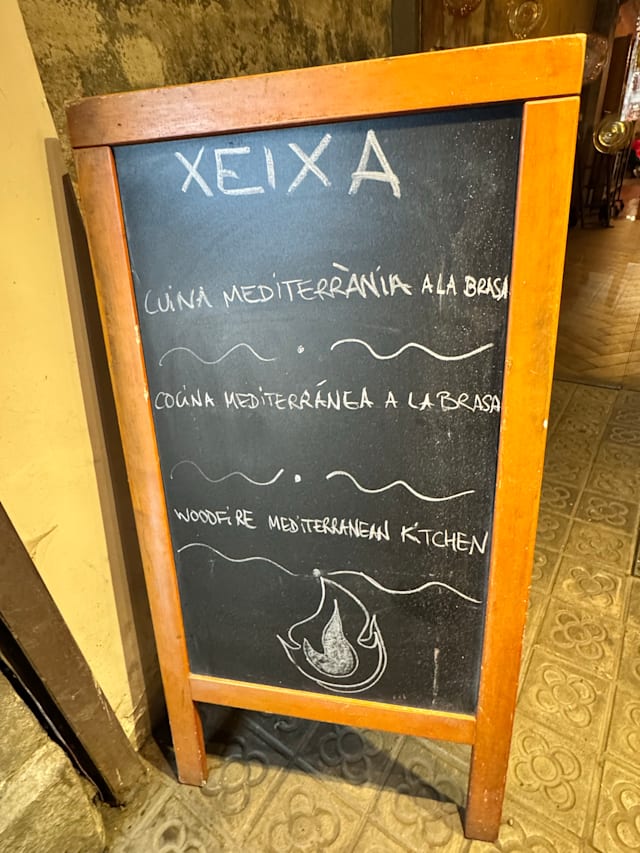 XEIXA
CUINA MEDITERRÀNIA A LA BRASA
COCINA MEDITERRÁNEA A LA BRASA
WOODFIRE MEDITERRANEAN KITCHEN